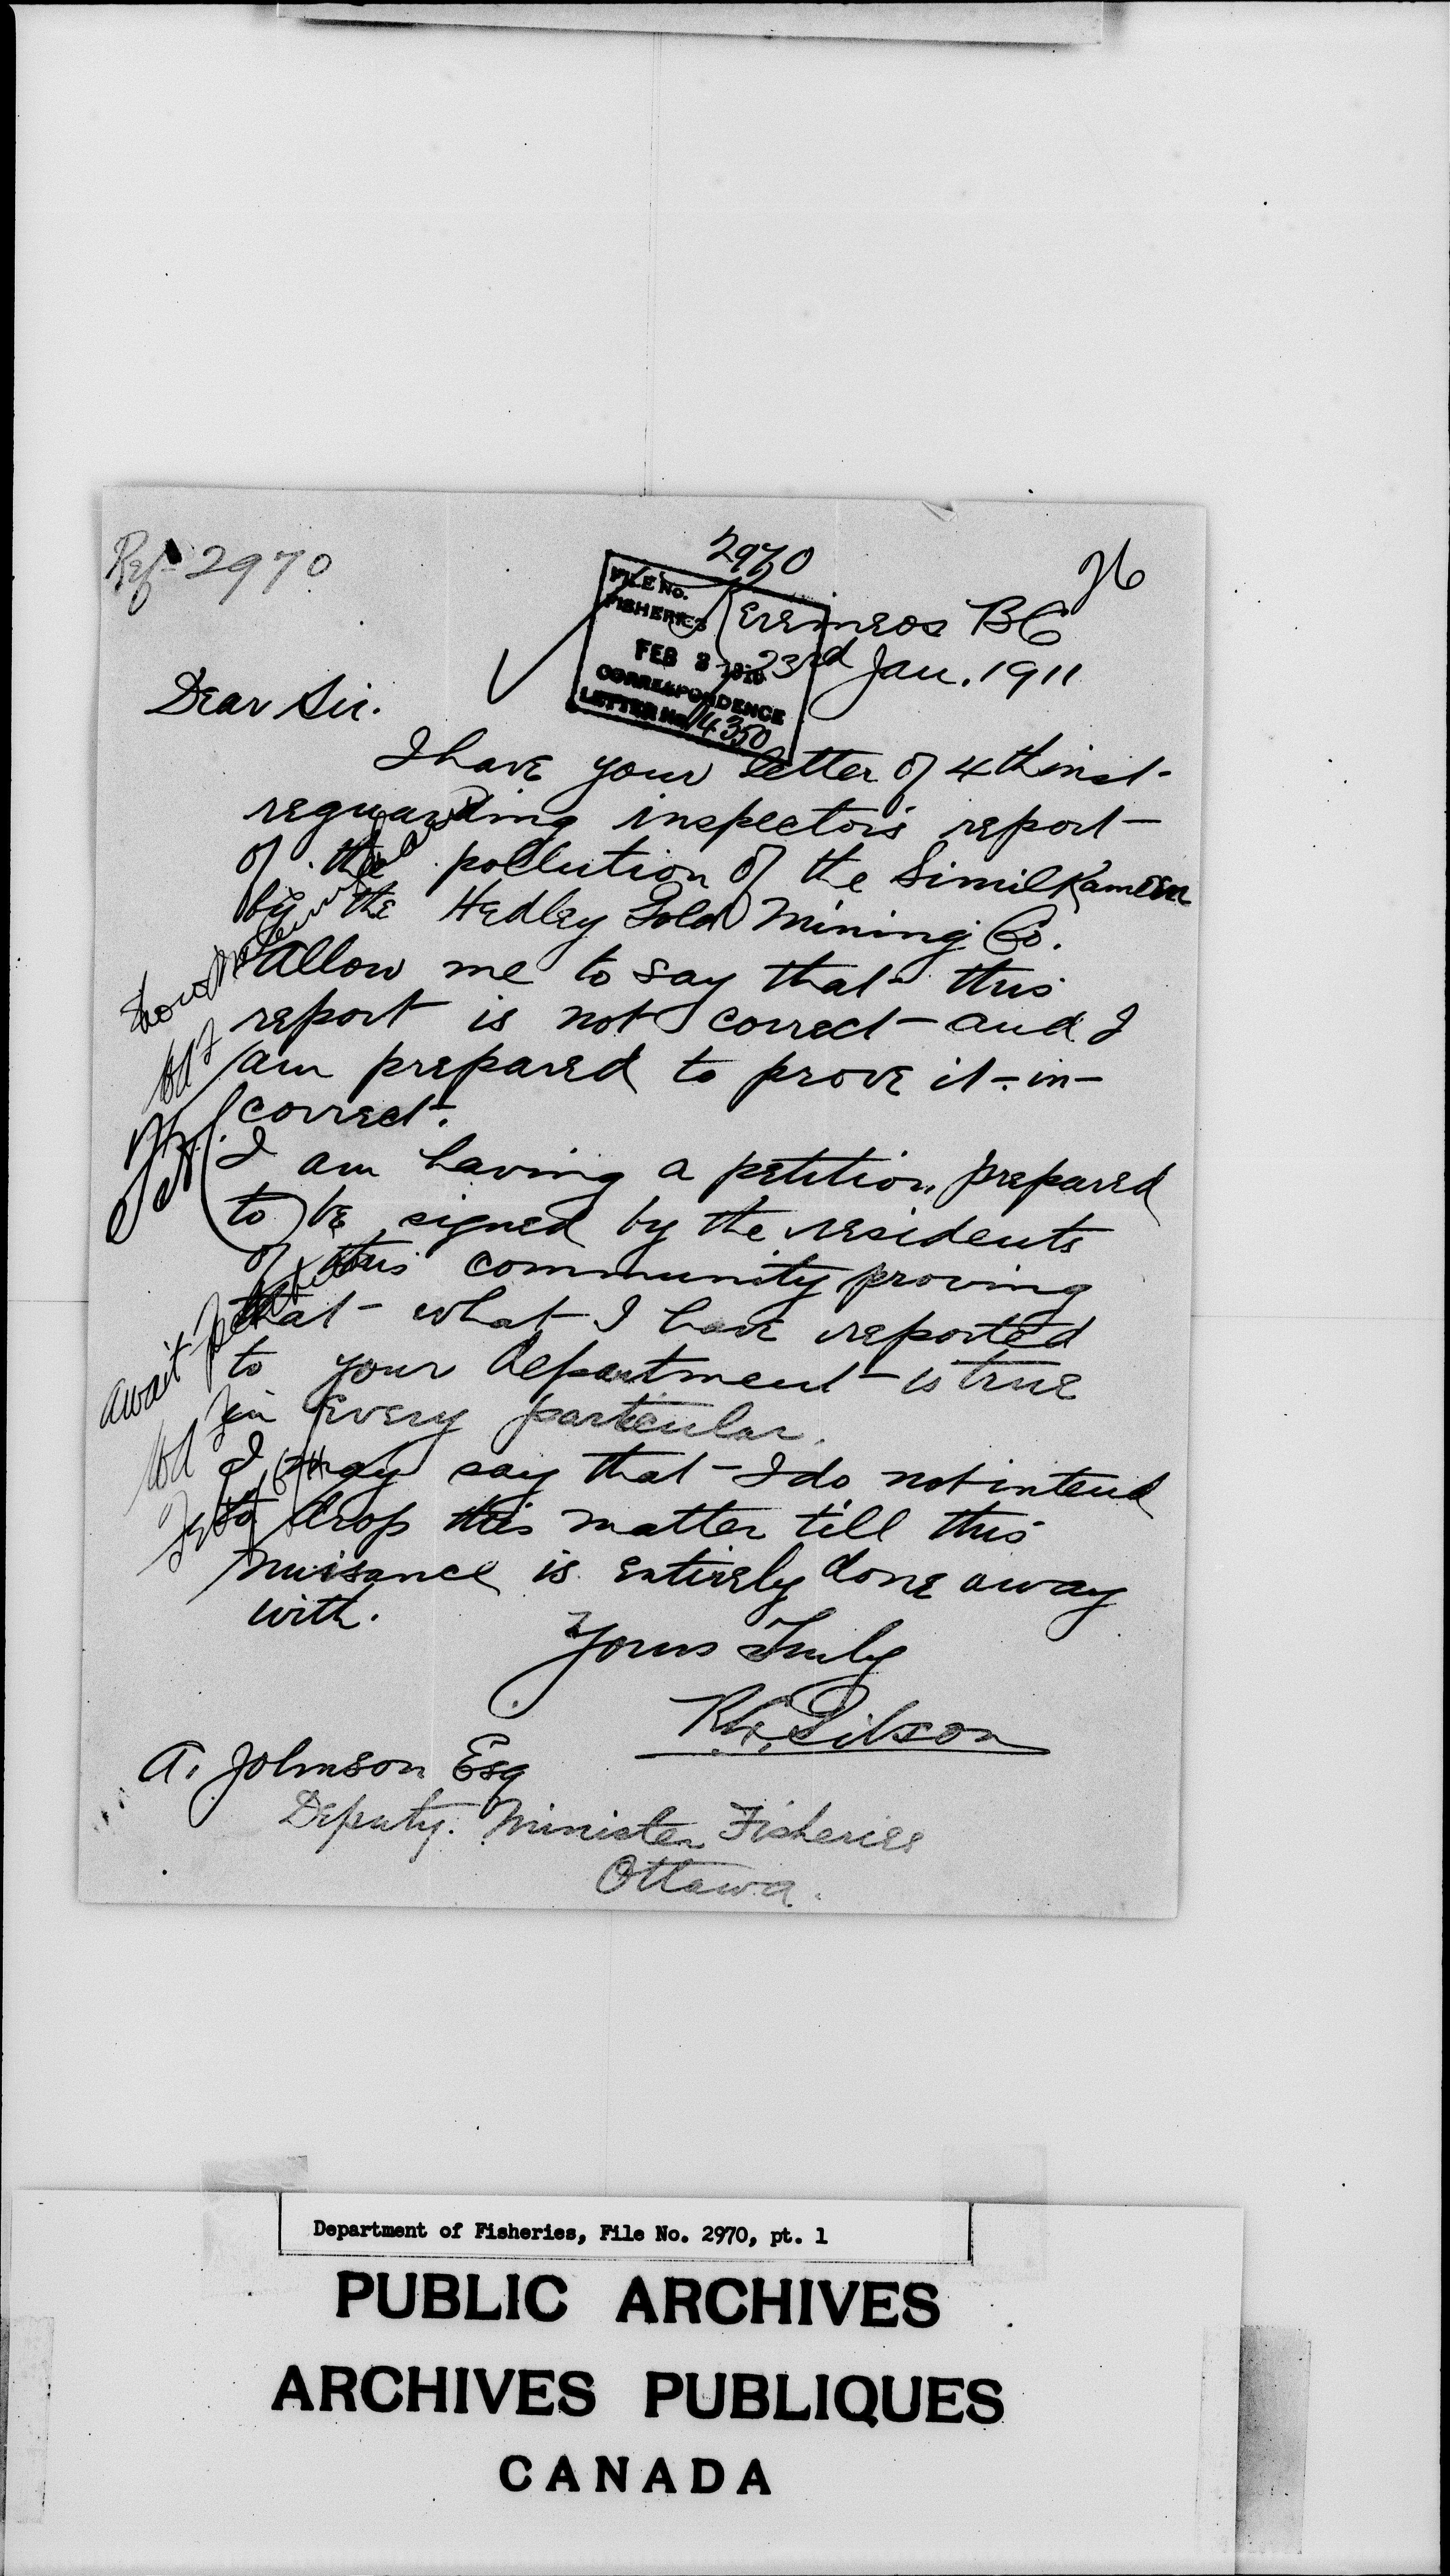 Ref 2970
2970
26
FILE No.
FISHERIES
FEB 3
CORRESPONDENCE
LETTER No. 14350
Keremeos BC
23rd Jan. 1911
Dear Sir.
I have your letter of 4th inst-
reguarding inspectors report-
of the pollution of the Similkameen
by the Hedley Gold Mining Co.
Allow me to say that this
report is not correct- and I
am prepared to prove it- in-
correct-.
I am having a petition prepared
to be signed by the residents
of this community proving
that- what I have reported
to your Department- is true
in Every particular.
I may say that- I do not intend
to drop this matter till this
nuisance is entirely done away
with.
Yours Truly
await
A. Johnson Esq
Deputy. Minister Fisheries
Ottawa.
Department of Fisheries, File No. 2970, pt. 1
PUBLIC ARCHIVES
ARCHIVES PUBLIQUES
CANADA